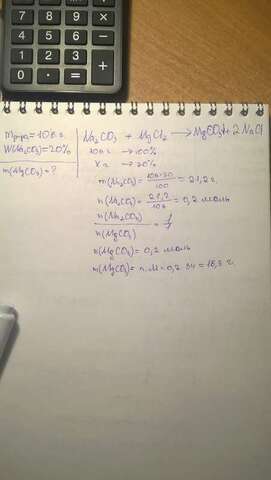 7 8 9
4 5 6
1 2 3
0
mр-ра = 106 г.
W(Na₂CO₃) = 20%
m(MgCO₃) = ?
Na₂CO₃ + MgCl₂ → MgCO₃↓ + 2NaCl
106 г → 100%
X г → 20%
m(Na₂CO₃) = 106·20/100 = 21,2 г.
n(Na₂CO₃) = 21,2/106 = 0,2 моль
n(Na₂CO₃)/n(MgCO₃) = 1/1
n(MgCO₃) = 0,2 моль
m(MgCO₃) = n·M = 0,2·84 = 16,8 г.